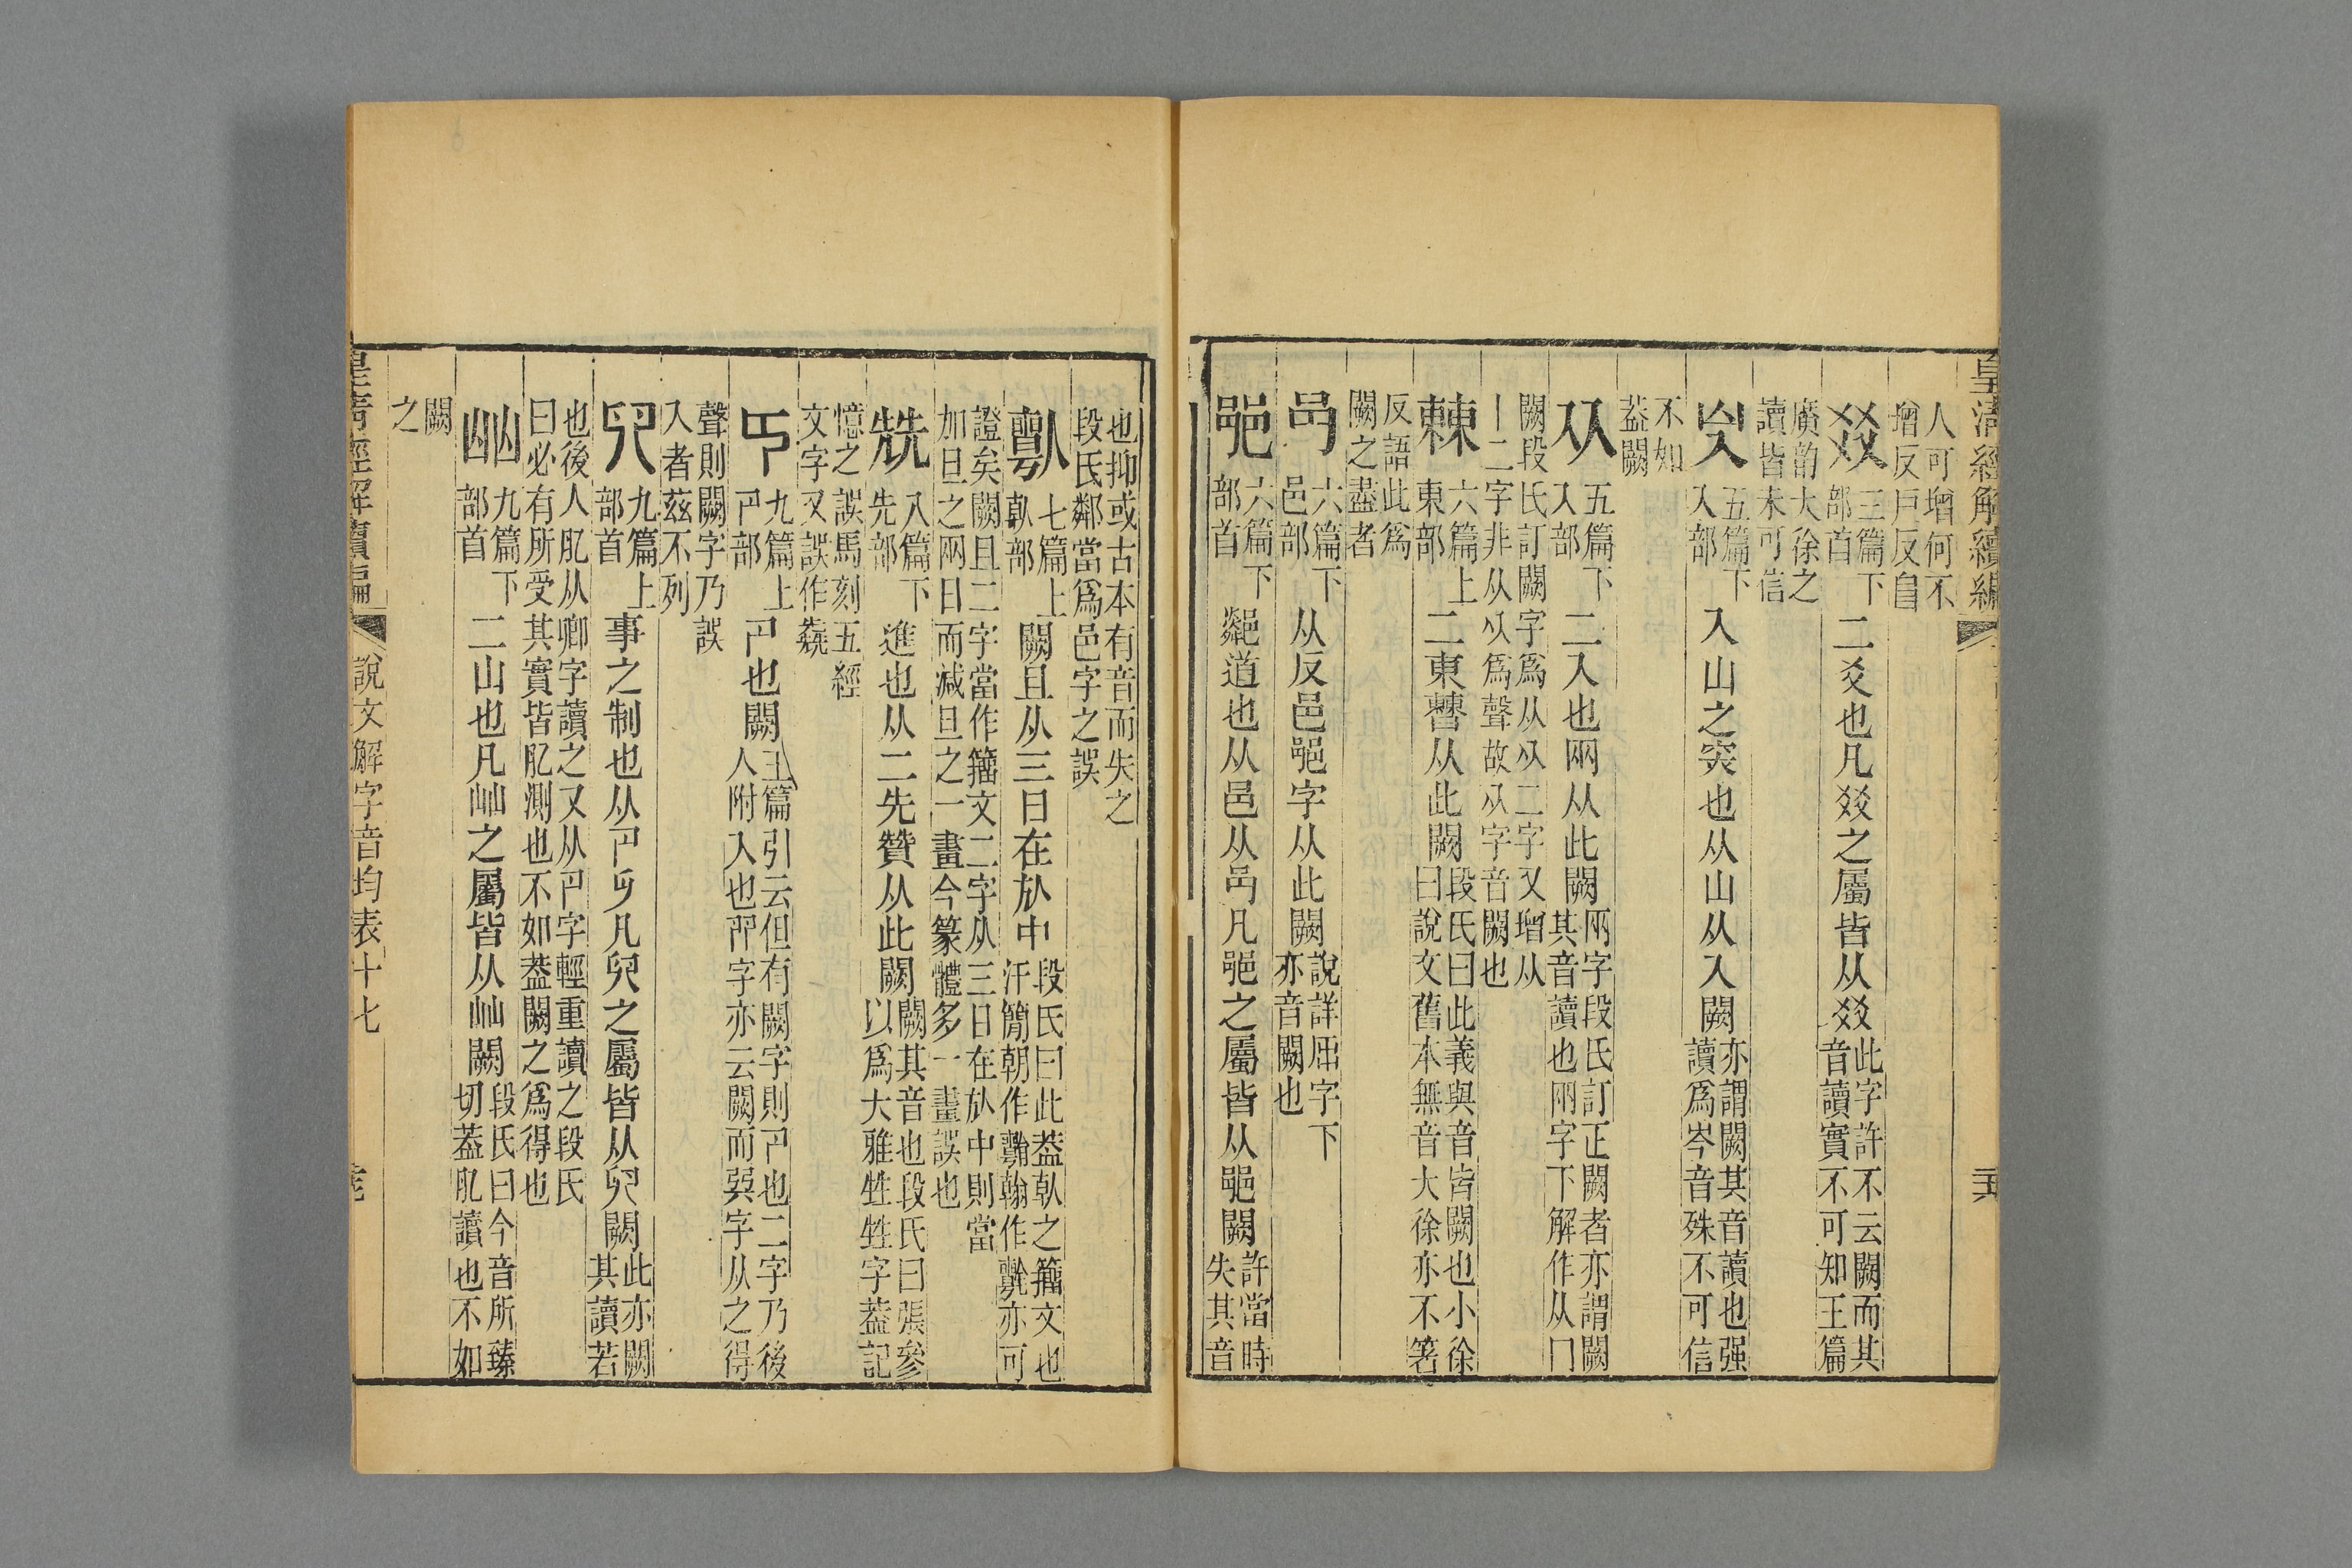 皇清經解續編
人可增何不
增反戶反自
㸚三篇下部首二爻也凡㸚之屬皆从㸚此字許不云闕而其音讀實不可知玉篇
廣韵大徐之
讀皆未可信
㞥五篇下入部入山之突也从山从入闕亦謂闕其音讀也强讀爲岑音殊不可信
不如
葢闕
㒳五篇下入部二入也兩从此闕兩字段氏訂正闕者亦謂闕其音讀也网字下解作从冂
闕段氏訂闕字爲从从二字又增从
丨二字非从从爲聲故从字音闕也
𣛾六篇上東部二東𣍘从此闕段氏曰此義與音皆闕也小徐曰說文舊本無音大徐亦不箸
反語此爲
闕之盡者
𨙨六篇下邑部从反邑𨛜字从此闕說詳𠨍字下亦音闕也
𨛜六篇下部首鄰道也从邑从𨙨凡𨛜之屬皆从𨛜闕許當時失其音
也抑或古本有音而失之
段氏鄰當爲邑字之誤
七篇上倝部闕且从三日在㫃中段氏曰此葢倝之籀文也汗簡朝作翰作亦可
證矣闕且二字當作籀文二字从三日在㫃中則當
加旦之网日而減旦之一畫今篆體多一畫誤也
兟八篇下先部進也从二先贊从此闕闕其音也段氏曰張參以爲大雅甡甡字葢記
憶之誤馬刻五經
文字又誤作
九篇上卪部卪也闕玉篇引云但有闕字則卪也二字乃後人附入也卯字亦云闕而巽字从之得
聲則闕字乃誤
入者茲不列
𠨍九篇上部首事之制也从卪凡𠨍之屬皆从𠨍闕此亦闕其讀若
也後人肊从卿字讀之又从卪字輕重讀之段氏
曰必有所受其實皆肊測也不如葢闕之爲得也
屾九篇下部首二山也凡屾之屬皆从屾闕段氏曰今音所臻切葢肊讀也不如
闕
之
皇清經解續編
說文解字音均表十七